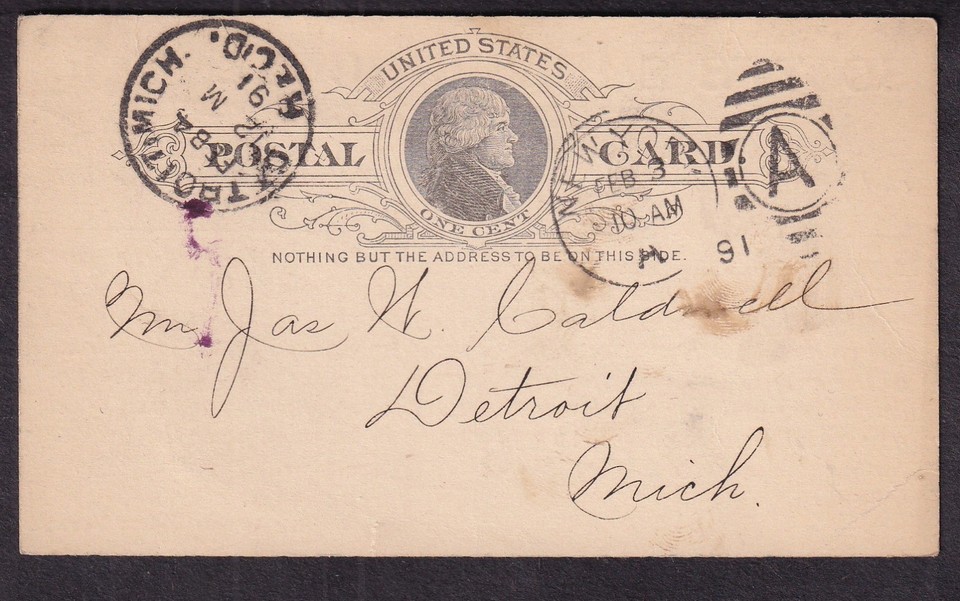 UNITED STATES
POSTAL CARD.
ONE CENT
NOTHING BUT THE ADDRESS TO BE ON THIS SIDE.
DETROIT, MICH. REC'D.
91
NEW YORK
FEB 3
10 AM
91
A
Jas W. Caldwell
Detroit
Mich.